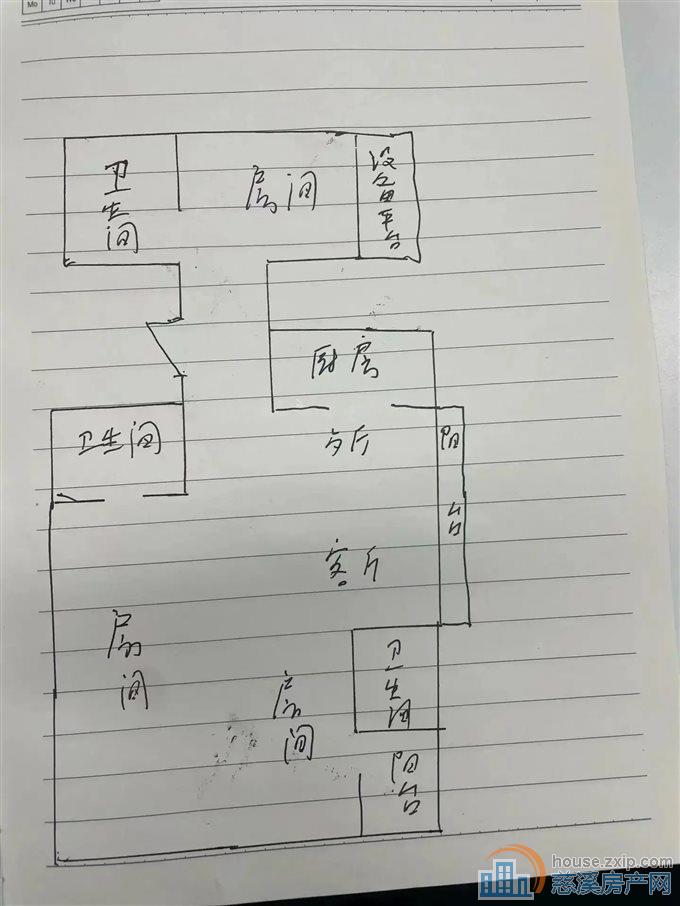 Mo Tu We
卫生间
房间
设备平台
厨房
卫生间
方厅
阳台
客厅
房间
房间
卫生间
阳台
house.zxip.com
慈溪房产网